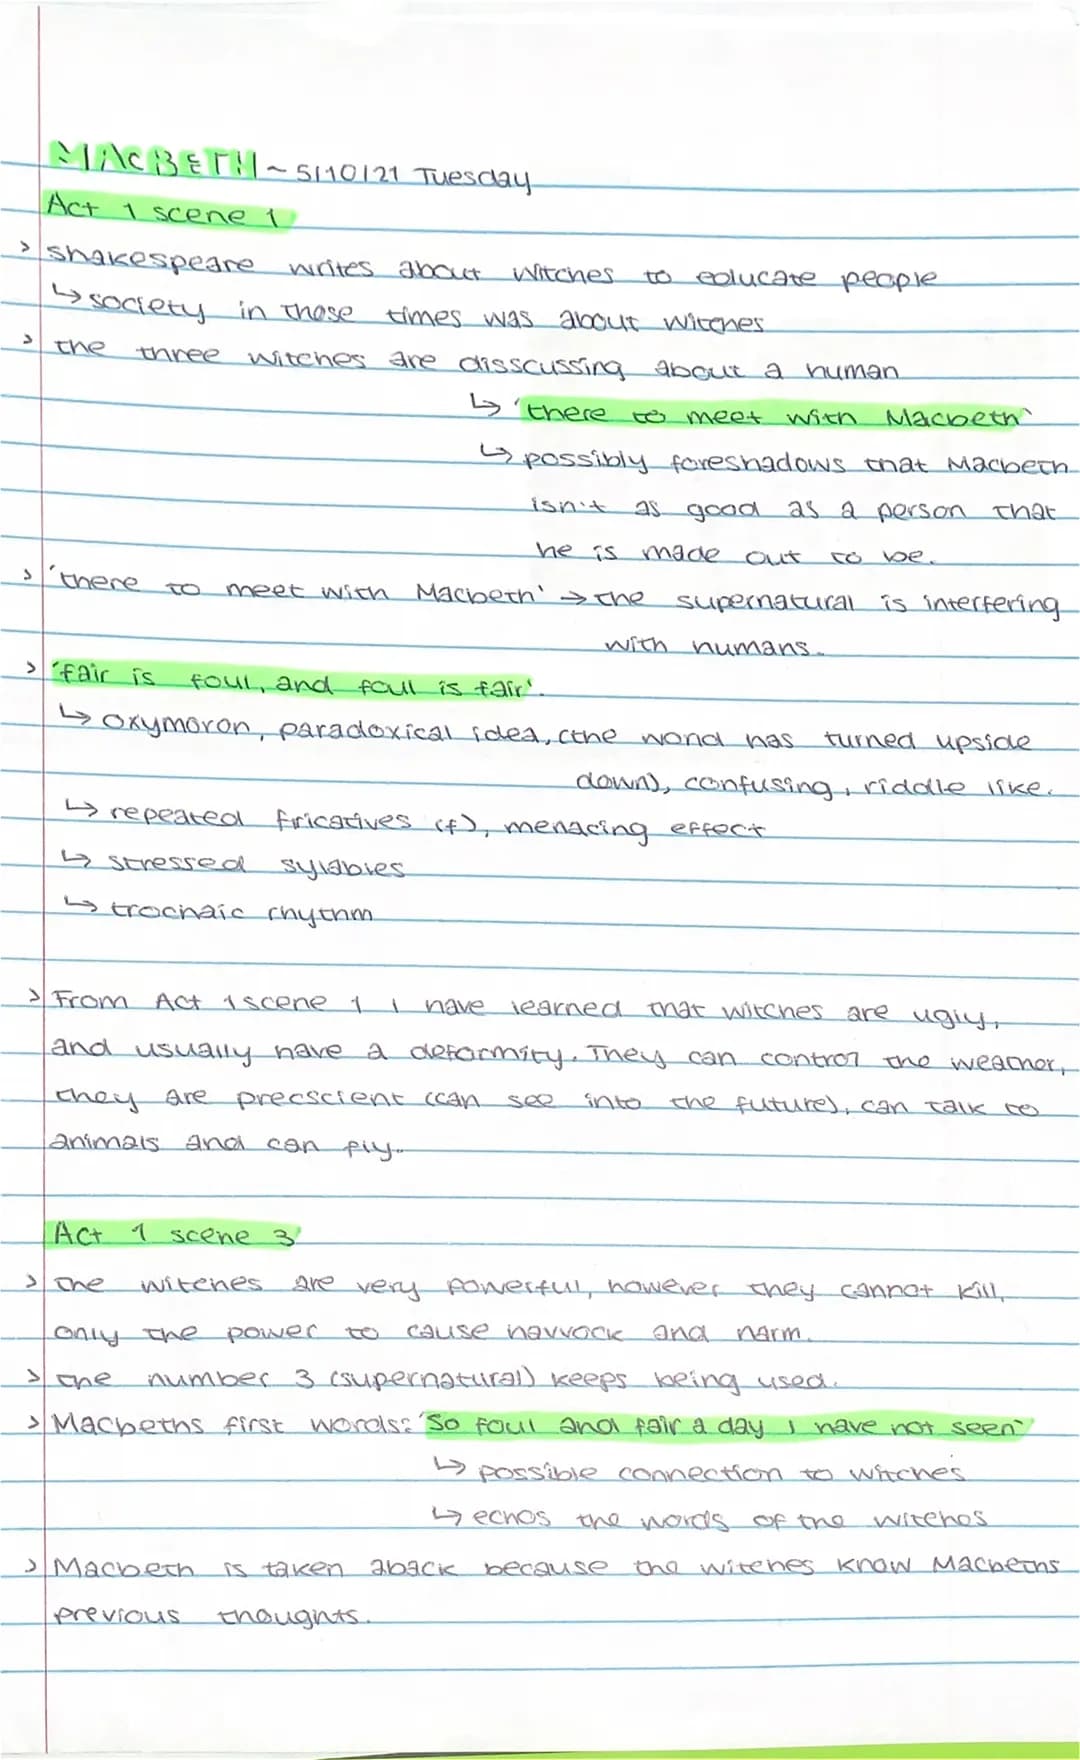 MACBETH ~ 5/10/21 Tuesday
Act 1 scene 1
> shakespeare writes about witches to educate people
↳ society in those times was about witches
> the three witches are disscussing about a human
↳ 'there to meet with Macbeth'
↳ possibly foreshadows that Macbeth
isn't as good as a person that
he is made out to be.
> 'there to meet with Macbeth' → the supernatural is interfering
with humans.
> 'fair is foul, and foul is fair'.
↳ oxymoron, paradoxical idea, (the world has turned upside
down), confusing, riddle like.
↳ repeated fricatives (f), menacing effect
↳ stressed sylables
↳ trochaic rhythm
> From Act 1 scene 1 I have learned that witches are ugly,
and usually have a deformity. They can control the weather,
they are precscient (can see into the future), can talk to
animals and can fly.
Act 1 scene 3
> the witches are very powerful, however they cannot kill,
only the power to cause havvock and harm.
> the number 3 (supernatural) keeps being used.
> Macbeths first words: 'So foul and fair a day I have not seen'
↳ possible connection to witches
↳ echos the words of the witches
> Macbeth is taken aback because the witches know Macbeths
previous thoughts.